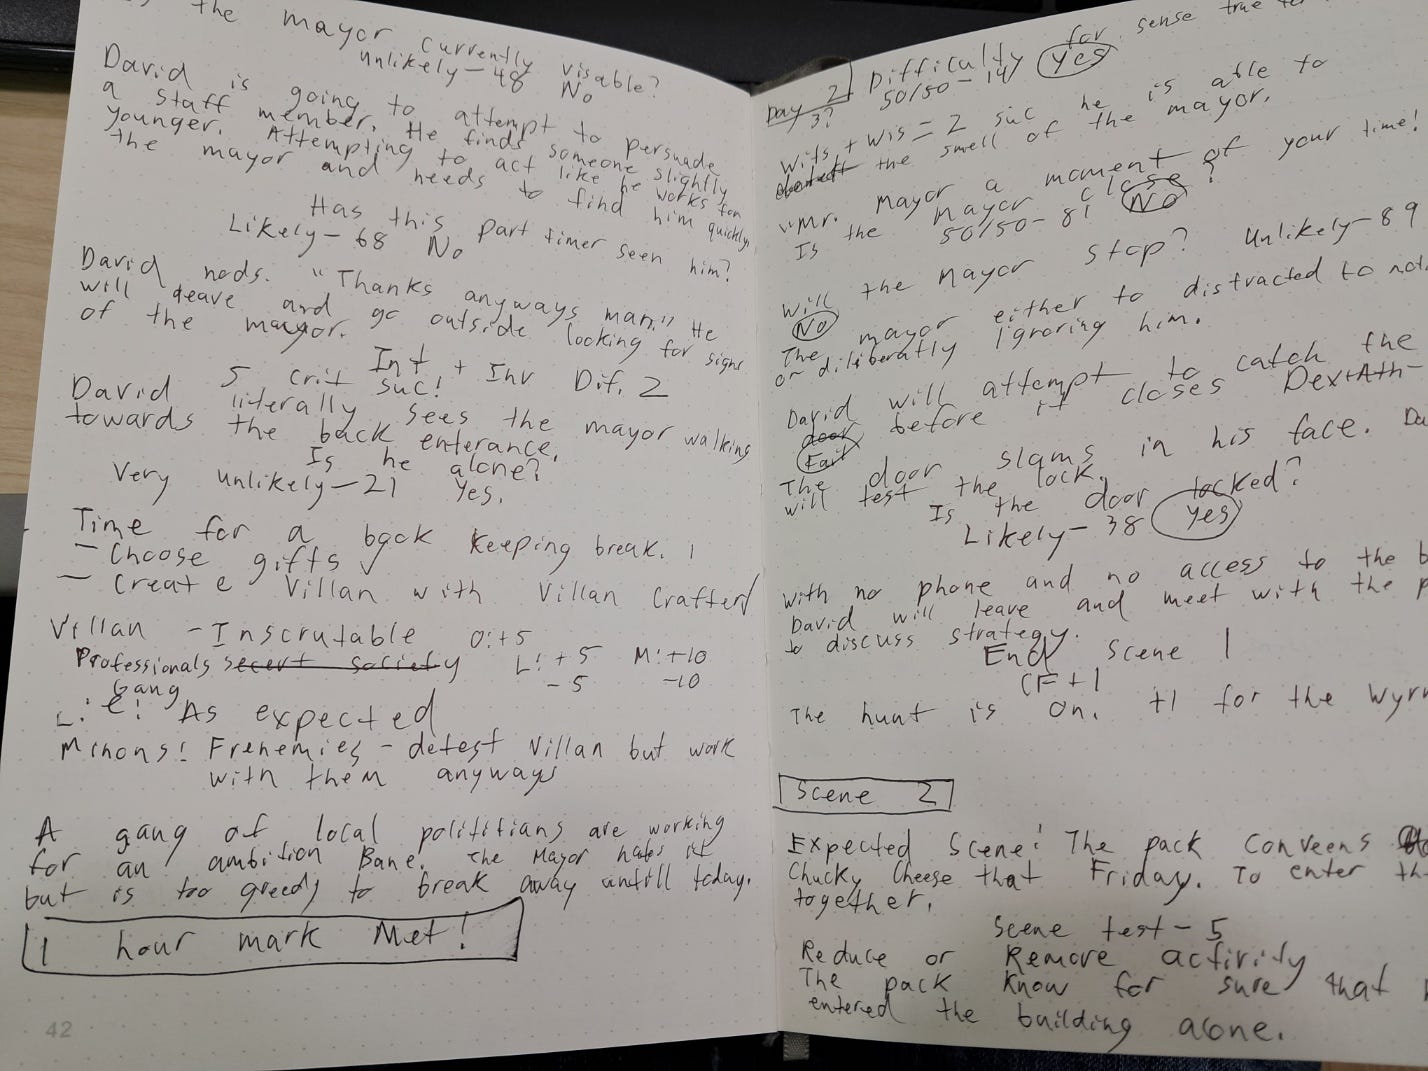 the mayor currently visable?
unlikely - 48 No
David is going to attempt to persuade
a staff member. He finds someone slightly
younger. Attempting to act like he works for
the mayor and needs to find him quickly
Has this part timer seen him?
Likely - 68 No
David nods. "Thanks anyways man." He
will leave and go outside looking for signs
of the mayor.
Int + Inv Dif. 2
5 crit suc!
David literally sees the mayor walking
towards the back enterance.
Is he alone?
Very unlikely - 21 Yes.
Time for a book keeping break.
- Choose gifts ✓
- Create Villan with Villan Crafter
Villan - Inscrutable O: +5
Professionals secert society L: +5 M: +10
Gang -5 -10
L: e: As expected
Minons: Frenemies - detest Villan but work
with them anyways
A gang of local polititians are working
for an ambition Bane. The Mayor hates it
but is too greedy to break away untill today.
1 hour mark Met!
42
Day 2
3?
Difficulty for sense true
50/50 - 14 Yes
Wits + Wis = 2 suc he is able to
the smell of the mayor.
"Mr. Mayor a moment of your time!
Is the mayor close?
50/50 - 81 No
Will the Mayor stop? Unlikely - 89
No
The mayor either to distracted to
or diliberatly ignoring him.
David will attempt to catch the
door before it closes Dex+Ath -
Fail
The door slams in his face.
will test the lock.
Is the door locked?
Likely - 38 Yes
With no phone and no access to the
David will leave and meet with the
to discuss strategy.
End Scene 1
CF +1
The hunt is on. +1 for the
Scene 2
Expected Scene: The pack conveens
Chucky Cheese that Friday. To enter
together.
Scene test - 5
Reduce or Remove activity
The pack know for sure that
entered the building alone.